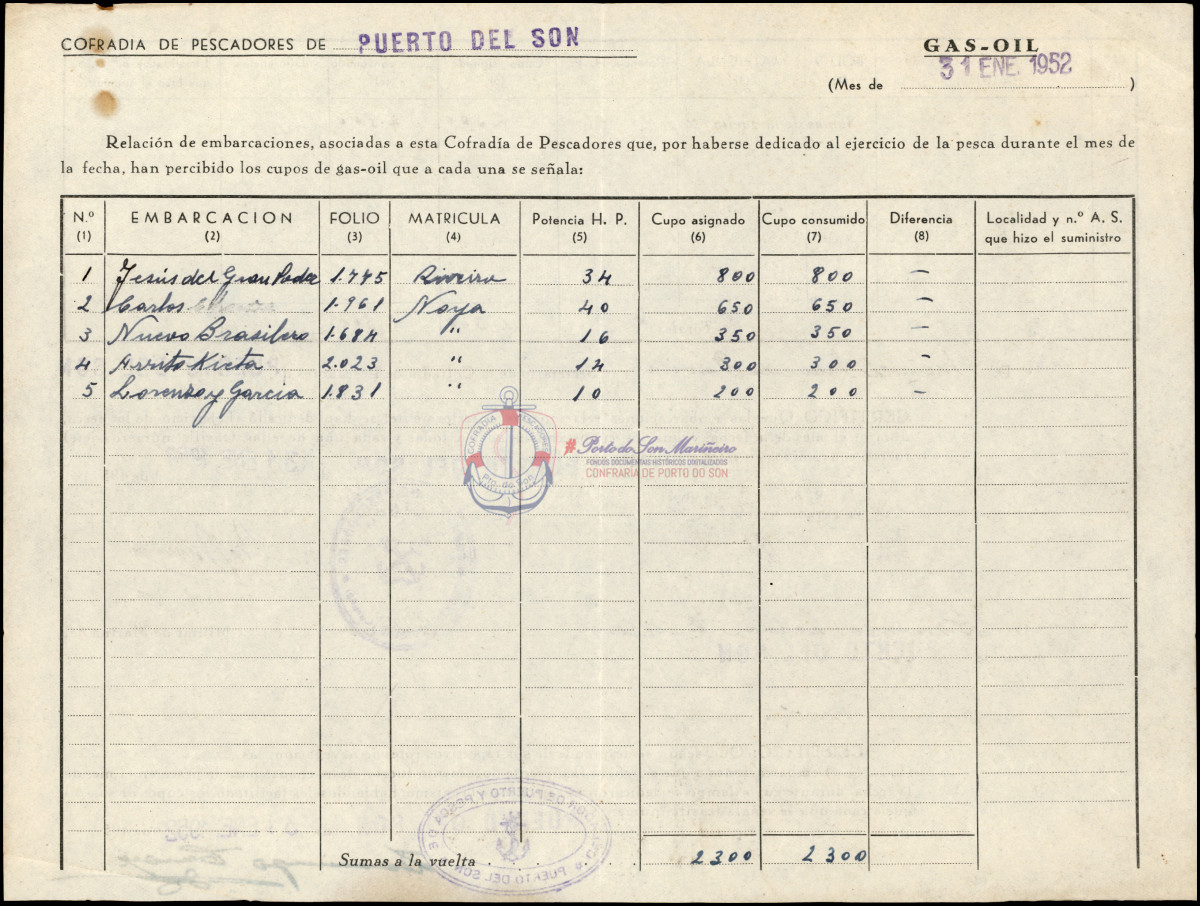 COFRADIA DE PESCADORES DE PUERTO DEL SON
GAS-OIL
31 ENE. 1952
(Mes de )
Relación de embarcaciones, asociadas a esta Cofradía de Pescadores que, por haberse dedicado al ejercicio de la pesca durante el mes de
la fecha, han percibido los cupos de gas-oil que a cada una se señala:
N.º EMBARCACION FOLIO MATRICULA Potencia H. P. Cupo asignado Cupo consumido Diferencia Localidad y n.º A. S.
(1) (2) (3) (4) (5) (6) (7) (8) que hizo el suministro
1 Jesús del Gran Poder 1.775 Riveira 34 800 800 —
2 Carlos 1.961 Noya 40 650 650 —
3 Nuevo Brasilero 1.684 " 16 350 350 —
4 Arrita Kieta 2.023 " 12 300 300 —
5 Lorenzo y Garcia 1.831 " 10 200 200 —
COFRADIA PESCADORES
Pto. do Son
#Porto do Son Mariñeiro
FONDOS DOCUMENTAIS HISTÓRICOS DIGITALIZADOS
CONFRARÍA DE PORTO DO SON
Sumas a la vuelta . . . . . 2300 2300